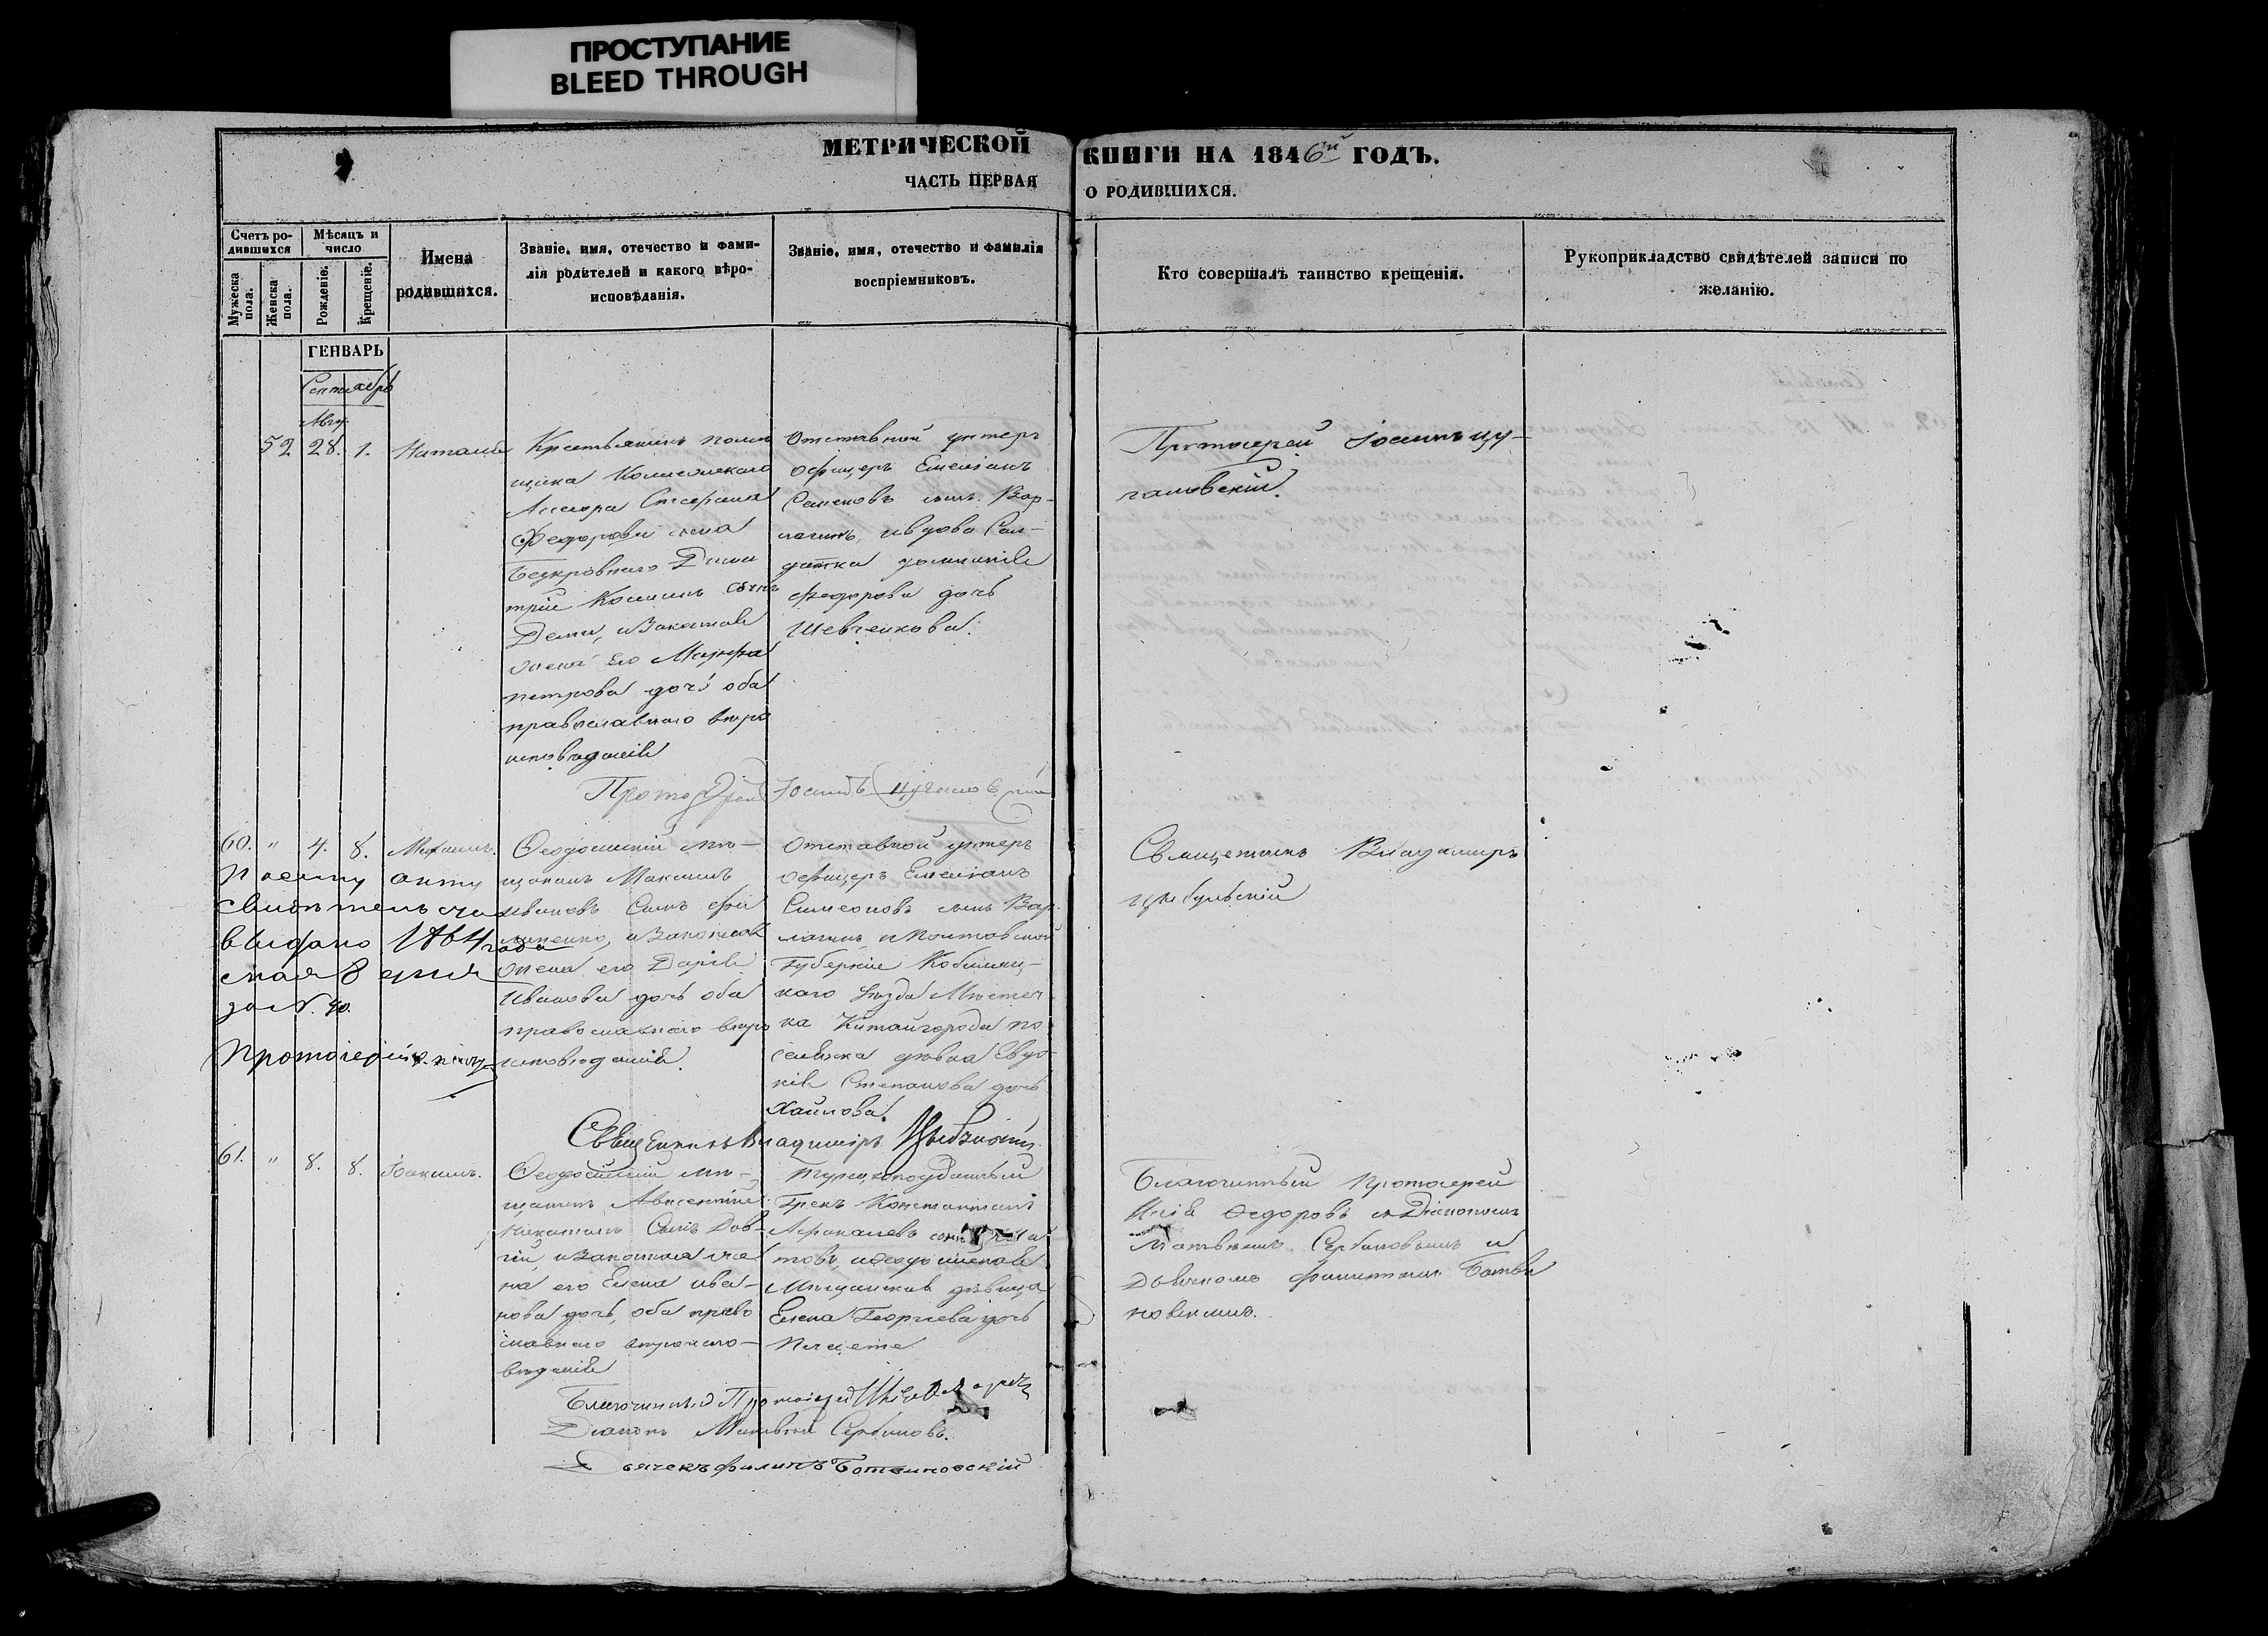 ПРОСТУПАНИЕ
BLEED THROUGH
МЕТРИЧЕСКОЙ КНИГИ НА 1846й ГОДЪ.
ЧАСТЬ ПЕРВАЯ О РОДИВШИХСЯ.
Счетъ ро-
дившихся
Мужеска
пола.
Женска
пола.
Мѣсяцъ и
число
Рожденіе.
Крещеніе.
Имена
родившихся.
Званіе, имя, отечество и фами-
лія родителей и какого вѣро-
исповѣданія.
Званіе, имя, отечество и фамилія
воспріемниковъ.
Кто совершалъ таинство крещенія.
Рукоприкладство свидѣтелей записи по
желанію.
ГЕНВАРЬ
Сентябрь
Авгу.
52. 28. 1. Наталія
Крестьянинъ помѣ
щика Колежскаго
Асесора Стефана
Федорова сына
Дими
трій Косминъ сынъ
и законная
жена его Марфа
петрова дочь оба
православнаго вѣро
исповѣданія
Отставной унтеръ
офицеръ Емеліанъ
Семеновъ сынъ Вар-
лагинъ, и вдова Сол-
датка домникія
Федорова дочь
Шевченкова.
Протоіерей Іоаннъ
Протоіерей Іоаннъ
60. " 4. 8.
Феодосійскій мѣ-
щанинъ Максимъ
Ивановъ Сынъ Фи
липенко, и Законная
жена его Дарія
Иванова дочь оба
православнаго вѣро
исповѣданія.
Отставной унтеръ
офицеръ Емеліанъ
Симеоновъ сынъ Вар-
лагинъ, и Полтавской
Губерніи Кобыляц-
каго уѣзда Мѣстеч
ка Китайгорода по
селянка дѣвка Евдо-
кія Степанова дочь
Священникъ Владиміръ
Цыбульскій
По сему акту
свидѣтельство
выдано 1864 года
мая 8 дня
за N. 40.
Протоіерей
Священникъ Владиміръ Цыбульскій
61. " 8. 8. Іоакимъ.
Феодосійскій мѣ-
щанинъ Авксентій
Сынъ Дов-
гій, и законная же
на его Елена Ива-
нова дочь, оба право
славнаго вѣроиспо-
вѣданія
Турецкоподданный
Грекъ Константинъ
и феодосійская
Мѣщанская дѣвица
Елена Георгіева дочь
Благочинный Протоіерей
Илія Федоровъ съ Діакономъ
Матвѣемъ Сербиновымъ и
Дьячкомъ Филиппомъ Ботви
новскимъ.
Благочинный Протоіерей Илія
Діаконъ Матвѣй Сербиновъ.
Дьячекъ Филипъ Ботвиновскій